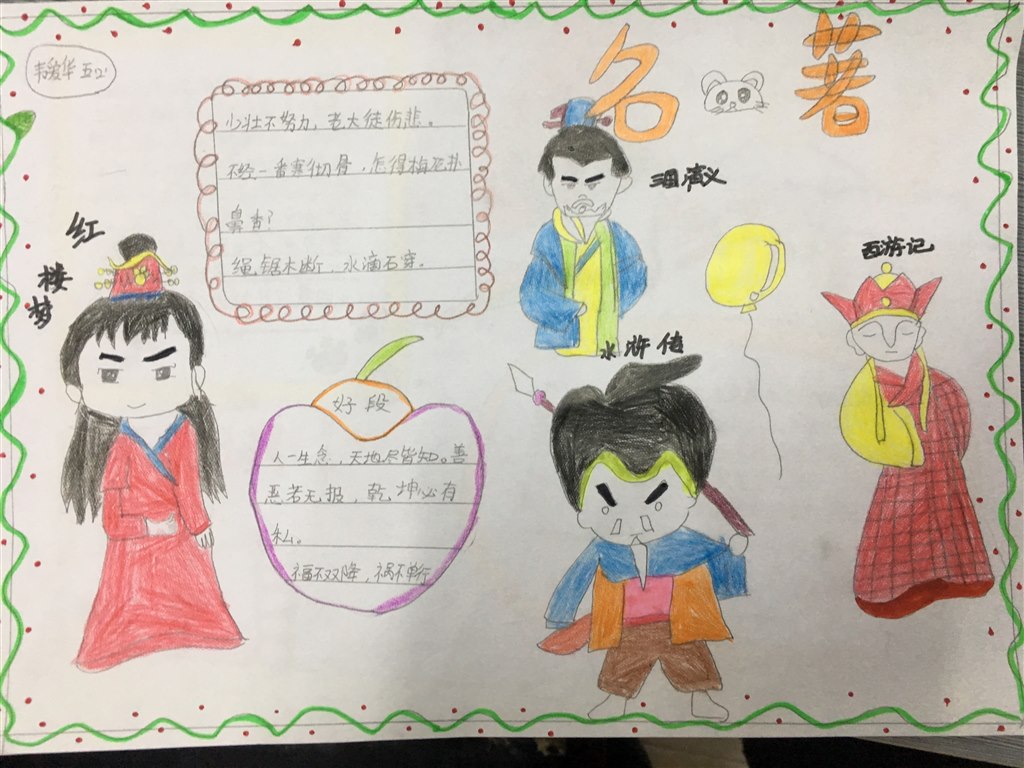 韦爱华 五(2)
名著
少壮不努力，老大徒伤悲。
不经一番寒彻骨，怎得梅花扑
鼻香？
绳锯木断，水滴石穿。
三国演义
西游记
红楼梦
水浒传
好段
人一生念，天地尽皆知。善
恶若无报，乾坤必有
私。
福不双降，祸不单行